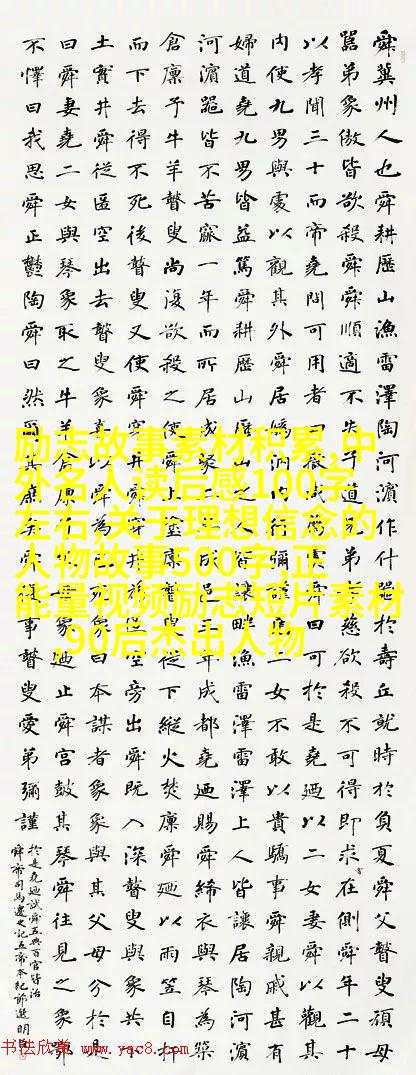 舜冀州人也舜耕歷山漁雷澤陶河濱作什器於壽丘就時於負夏舜父瞽叟頑母
嚚弟象傲皆欲殺舜舜順適不失子道兄弟孝慈欲殺不可得即求在側舜年二十
以孝聞三十而帝堯問可用者四嶽咸薦虞舜曰可於是堯廼以二女妻舜以觀其
內使九男與處以觀其外舜居媯汭內行彌謹堯二女不敢以貴驕事舜親戚甚有
婦道堯九男皆益篤舜耕歷山歷山之人皆讓畔漁雷澤雷澤上人皆讓居陶河濱
河濱器皆不苦窳一年而所居成聚二年成邑三年成都堯廼賜舜絺衣與琴為築
倉廩予牛羊瞽叟尚復欲殺之使舜上塗廩瞽叟從下縱火焚廩舜廼以兩笠自扞
而下去得不死後瞽叟又使舜穿井舜穿井為匿空旁出舜既入深瞽叟與象共下
土實井舜從匿空出去瞽叟象喜以舜為已死象曰本謀者象象與其父母分於是
曰舜妻堯二女與琴象取之牛羊倉廩予父母象廼止舜宮鼓其琴舜往見之象鄂
不懌曰我思舜正鬱陶舜曰然爾其庶矣舜復事瞽叟愛弟彌謹
於是堯廼試舜五典百官皆治
舜帝司馬遷史記五帝本紀節選明
励志故事素材积累,中
外名人读后感100字
左右,关于理想信念的
人物故事500字,正
能量视频励志短片素材
,90后杰出人物
书法欣赏 www.yac8.com